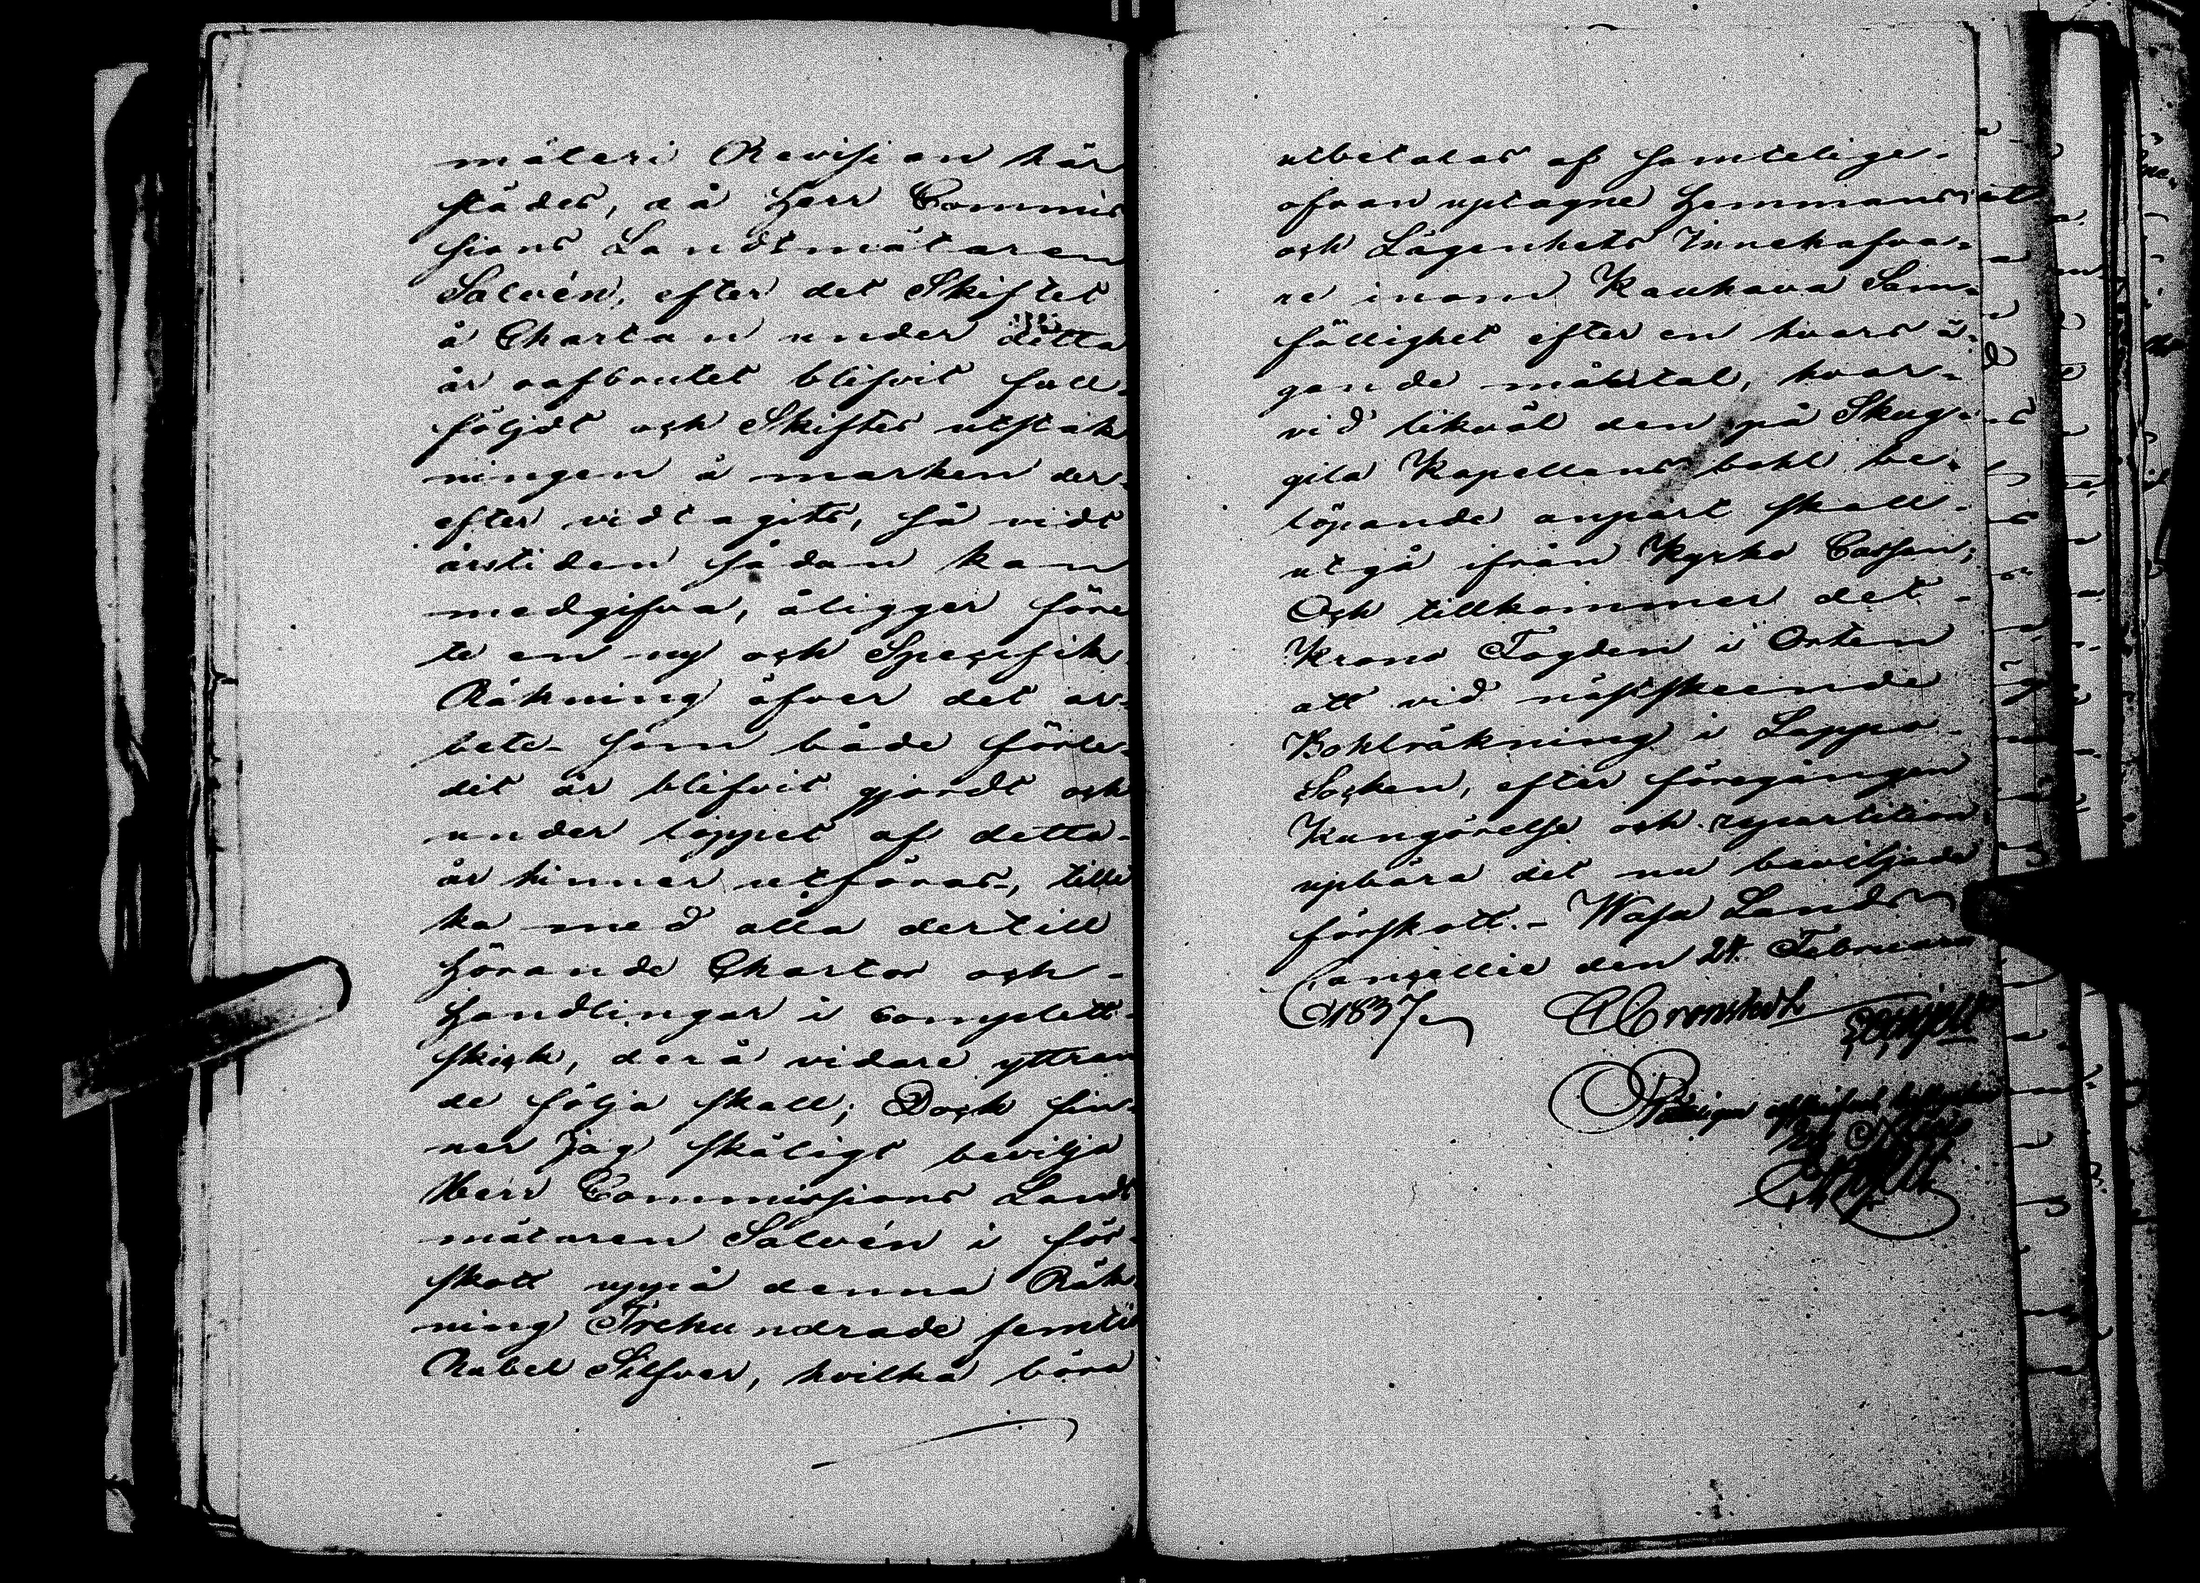 mäteri Revision här
städes, då Herr Commis
sions Landtmätaren
Salvén, efter det Skiftet
å Chartan under detta
år oafbrutet blifvit full-
följdt och Skiftes utstak
ningen å marken der-
efter vidtagits, så vidt
årstiden sådan kan
medgifva, åligger före
te en ny och Specifik
Räkning öfver det ar-
bete som både förle-
dit år blifvit gjordt och
under loppet af detta
år hinner utföras, tilli
ka med alla dertill
hörande Chartor och
handlingar i complett
skick, derå vidare yttran
de följa skall; Dock fin-
ner jag skäligt bevilja
Herr Commissions Landt
mätaren Salvén i för-
skott uppå denna Räk-
ning Trehundrade femtio
Rubel Silfver, hvilka böra
utbetalas af samtelige
ofvan uptagne Hemmans
och Lägenhets Innehafva-
re inom Kauhava Sam-
fällighet efter en hvars ä-
gande måhtal, hvar-
vid likväl den på Skog-
gila Kapellans bohl be-
löpande anpart skall
utgå ifrån Kyrko Cassan;
Och tillkommer det
Krono Fogden i Orten
att vid nästskeende
Bohlräkning i Lappo
Socken, efter föregången
Kungörelse och repartition
upbära det nu beviljade
förskott. - Wasa Lands
Cancellie den 24. Februari
1837
Cronstedt